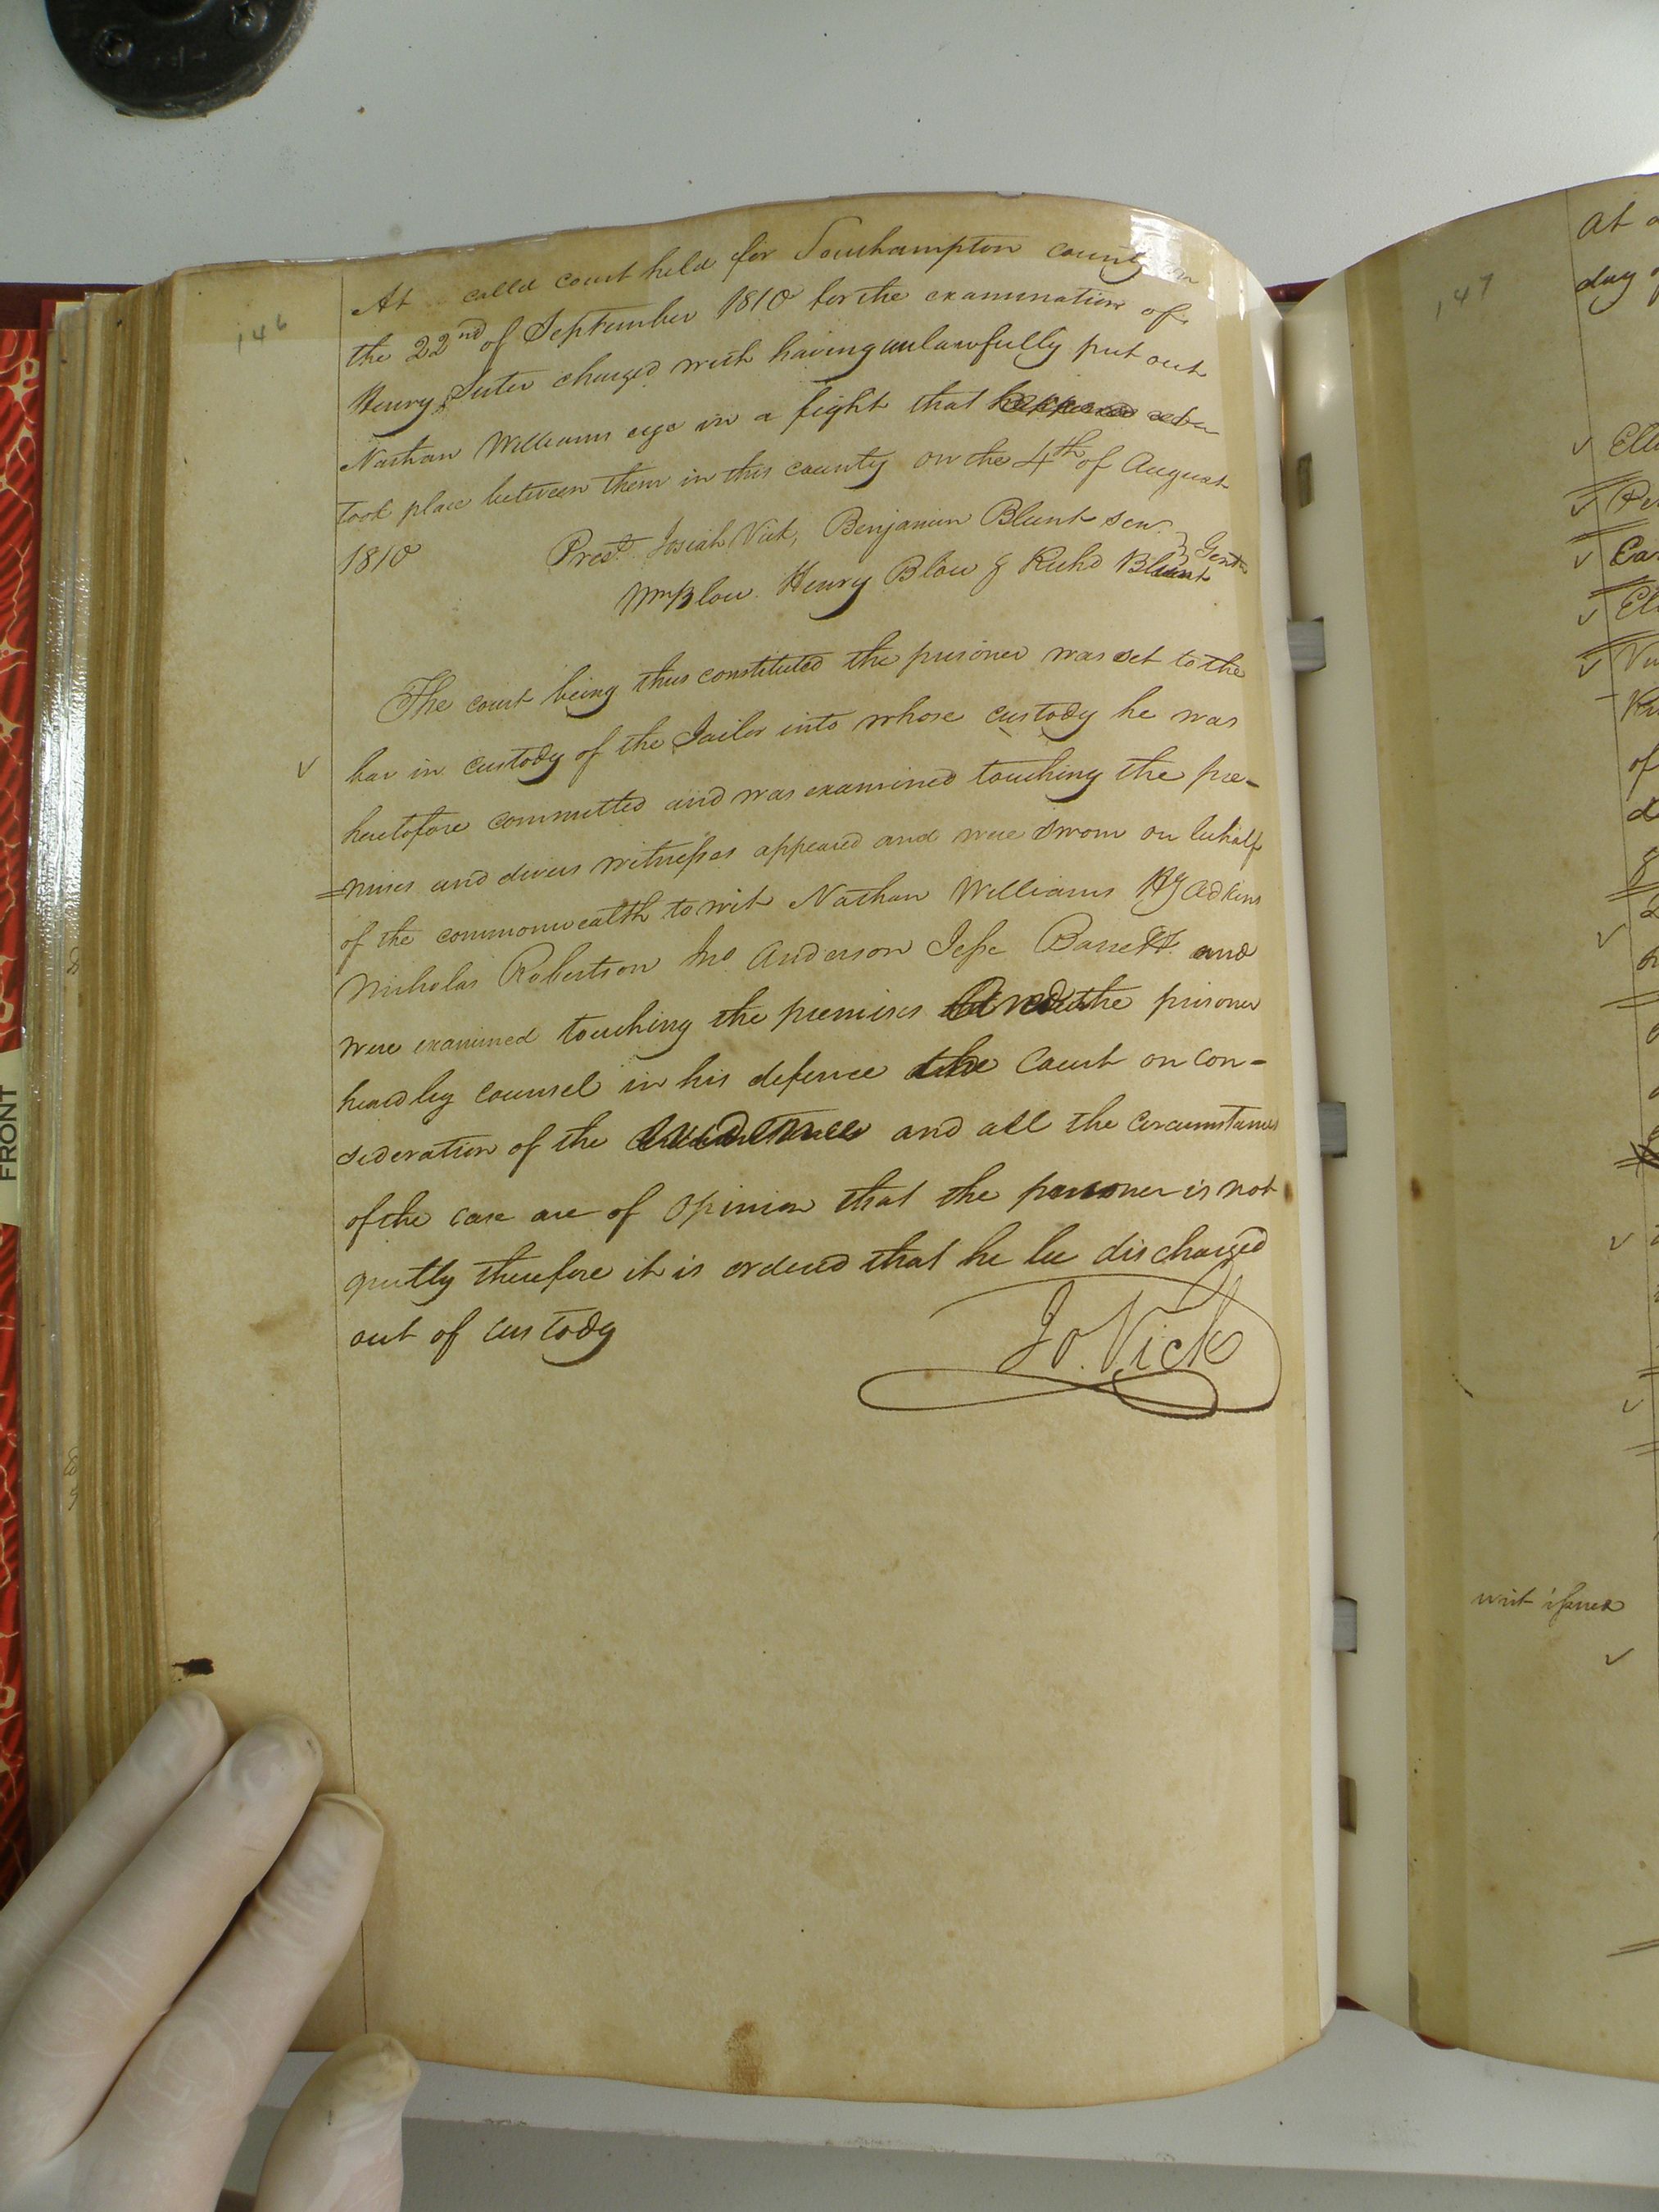 146
At called court held for Southampton county on
the 22nd of September 1810 for the examination of
Henry Suter charged with having unlawfully put out
Nathan Williams eye in a fight that
took place between them in this county on the 4th of August
1810
Prest. Josiah Vick, Benjamin Blunt senr. } Gent.
Wm Blow. Henry Blow & Richd Blunt
The court being thus constituted the prisoner was set to the
bar in custody of the Jailor into whose custody he was
heretofore committed and was examined touching the pre-
=mises and divers witnesses appeared and were sworn on behalf
of the commonwealth to wit Nathan Williams Adkins
Nicholas Robertson Jno Anderson Jesse Barrett and
were examined touching the premises the prisoner
heard by counsel in his defence the Court on con-
sideration of the and all the circumstances
of the case are of opinion that the prisoner is not
guilty therefore it is ordered that he be discharged
out of custody
Jo. Vick
FRONT
147
At
day
writ issued